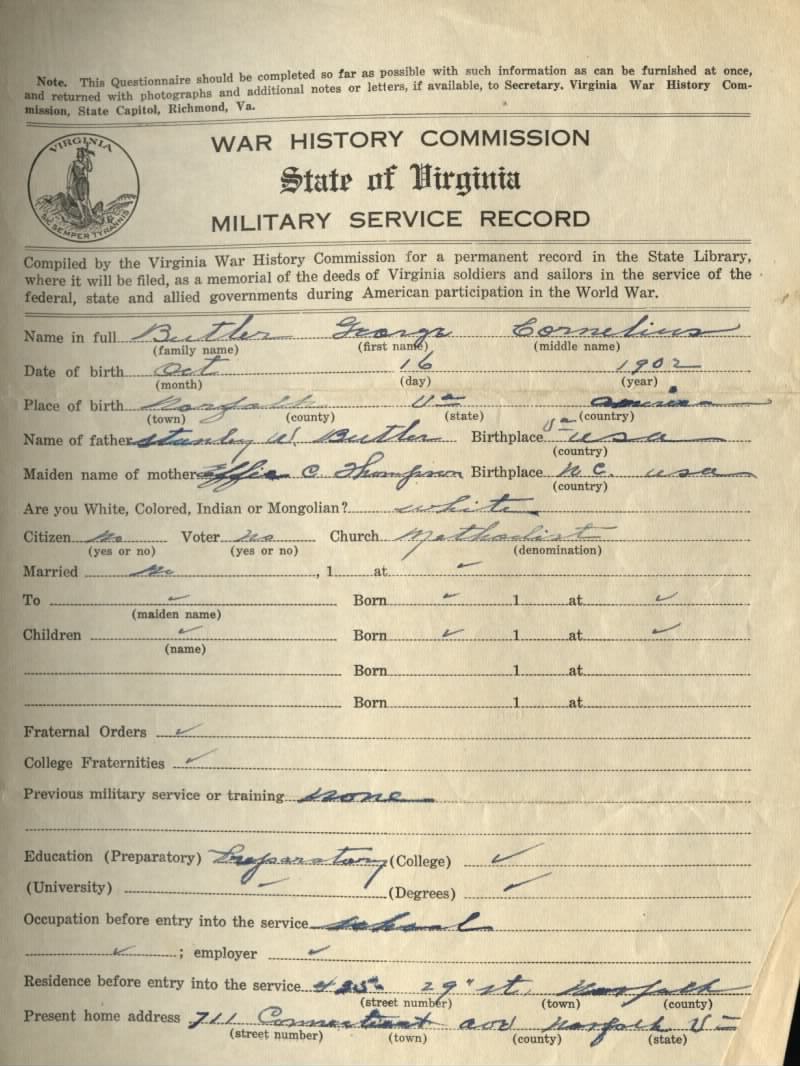 Note. This Questionnaire should be completed so far as possible with such information as can be furnished at once,
and returned with photographs and additional notes or letters, if available, to Secretary. Virginia War History Com-
mission, State Capitol, Richmond, Va.
VIRGINIA
SIC SEMPER TYRANNIS
WAR HISTORY COMMISSION
State of Virginia
MILITARY SERVICE RECORD
Compiled by the Virginia War History Commission for a permanent record in the State Library,
where it will be filed, as a memorial of the deeds of Virginia soldiers and sailors in the service of the
federal, state and allied governments during American participation in the World War.
Name in full Butler George Cornelius
(family name) (first name) (middle name)
Date of birth Oct 16 1902
(month) (day) (year)
Place of birth Norfolk Va
(town) (county) (state) (country)
Name of father Stanley W. Butler Birthplace Va usa
(country)
Maiden name of mother Effie C. Thompson Birthplace N.C. usa
(country)
Are you White, Colored, Indian or Mongolian? white
Citizen No Voter No Church Methodist
(yes or no) (yes or no) (denomination)
Married No , 1 at ✓
To ✓ Born ✓ 1 at ✓
(maiden name)
Children ✓ Born ✓ 1 at ✓
(name)
Born 1 at
Born 1 at
Fraternal Orders ✓
College Fraternities ✓
Previous military service or training none
Education (Preparatory) Preparatory (College) ✓
(University) ✓ (Degrees) ✓
Occupation before entry into the service school
✓ ; employer ✓
Residence before entry into the service 29" st, Norfolk
(street number) (town) (county)
Present home address 711 Connecticut Norfolk Va
(street number) (town) (county) (state)